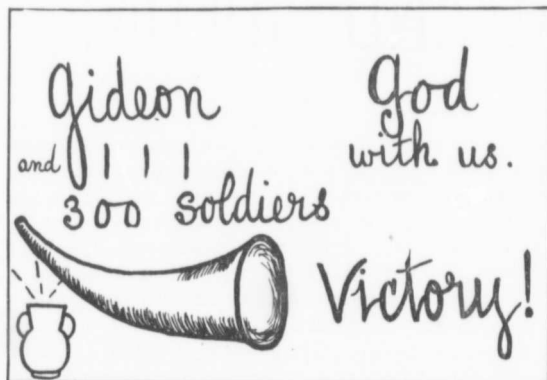 Gideon
and | | |
300 soldiers
God
with us.
Victory!